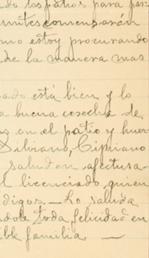 do los patios para par
unites comenzaron
mo estoy procurando
de la manera mas
ado está bien y lo
a buena cosecha de
s en el patio y huer
Sabiano, Cipriano
saludan afectuosa
l licenciado quien
digos.— Lo saluda
ndole toda felicidad en
ble familia —